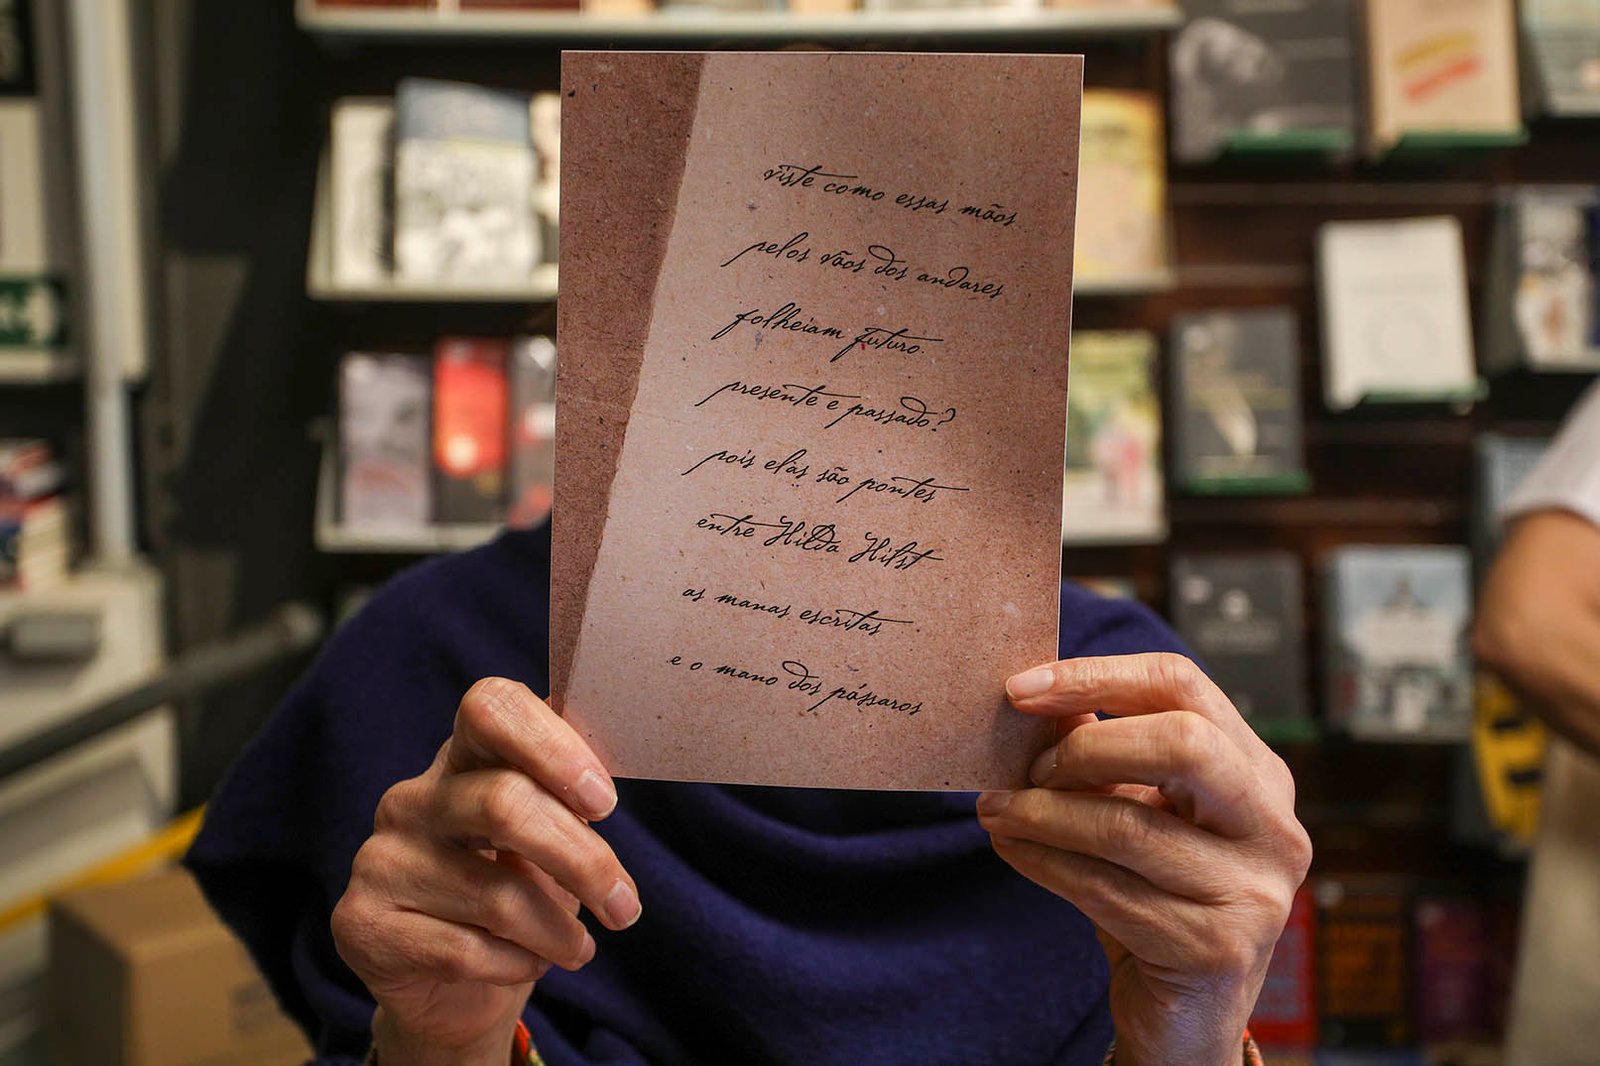 viste como essas mãos
pelos vãos dos andares
folheiam futuro.
presente e passado?
pois elas são pontes
entre Hilda Hilst
as manas escritas
e o mano dos pássaros